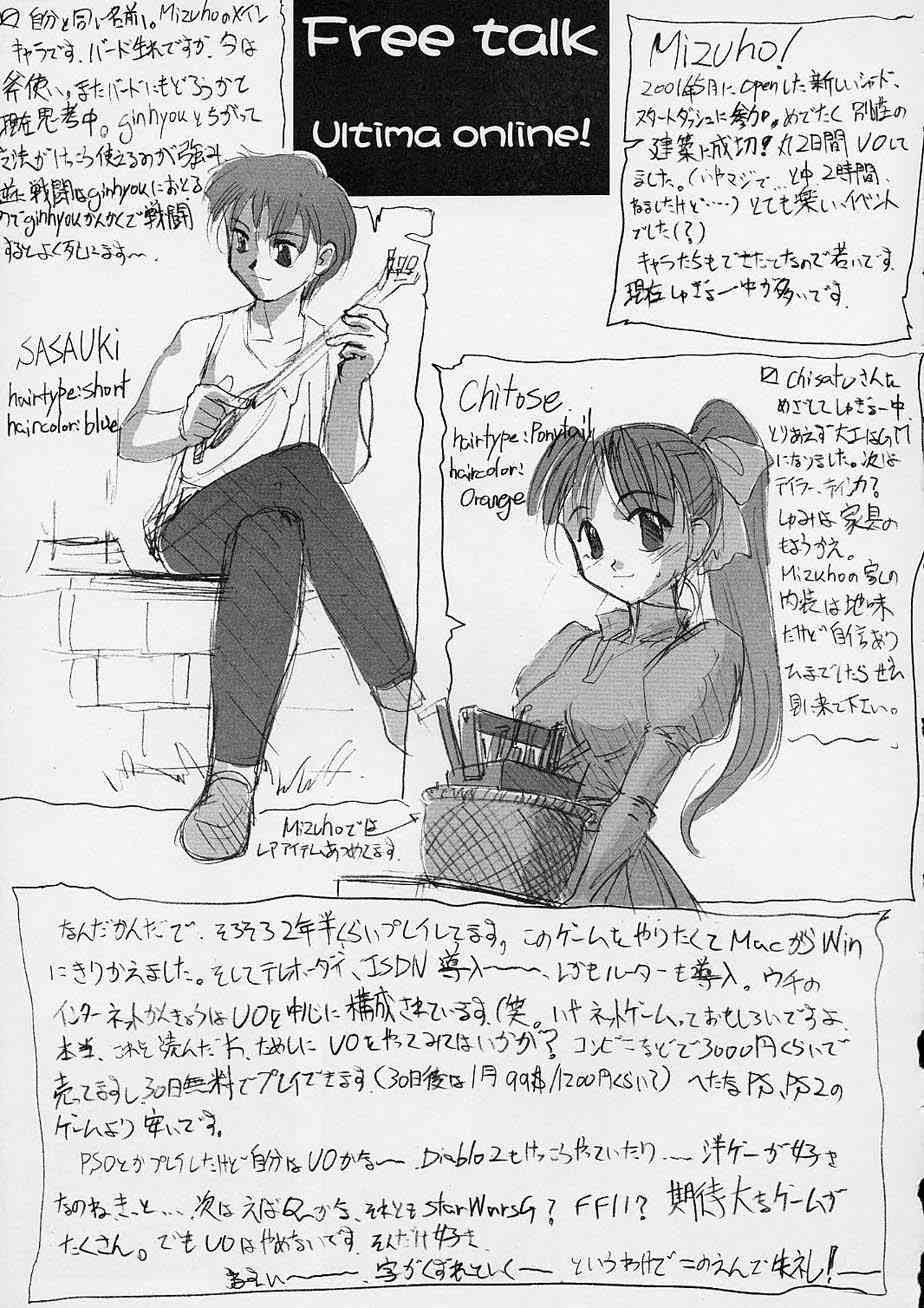 Free talk
Ultima online!
自分と同じ名前。Mizuhoのメイン
キャラです。バード生れですが、今は
斧使い。またバードにもどろうかて
現在思考中。ginhyouとちがって
並に戦闘はginhyouにおとる
のでginhyouかんかくで戦闘
するとよく死にます〜。
SASAUKi
hairtype:short
haircolor:blue
Mizuho!
2001年5月にOpenした新しいシャド、
スタートダッシュに参加。めでたく別荘の
建築に成功!丸2日間UOして
ました。(いやマジで…と中2時間、
ねましたけど‥‥)とても楽しいイベント
でした(?)
キャラたちもできたてなので若いです。
現在しゅぎょー中が多いです。
Chitose
hairtype:Ponytail
haircolor:
Orange
Chisatoさんを
めざしてしゅぎょー中
とりあえず大工はGM
になりました。次は
テイラー、ティンカ?
しゅみは家具の
もようかえ。
Mizuhoの家の
内装は地味
だけど自信あり
ひまでしたらぜひ
見に来て下さい。
Mizuhoでは
レアアイテムあつめてます。
なんだかんだで、そろそろ2年半くらいプレイしてます。このゲームをやりたくてMacからWin
にきりかえました。そしてテレホーダイ、ISDN導入〜〜〜、しかもルーターも導入。ウチの
インターネットかんきょうはUOを中心に構成されています。(笑。いやネットゲームっておもしろいですよ、
本当。これを読んだ方、ためしにUOをやってみてはいかが?コンビニなどで3000円くらいで
売ってますし30日無料でプレイできます(30日後は1月99$/1200円くらいで)へたなPS、PS2の
ゲームより安いです。
PSOとかプレイしたけど自分はUOかな〜 Diablo2もけっこうやっていたり…洋ゲーが好き
なのねきっと…次はえばQuかな、それともStarWarsG?FF11?期待大なゲームが
たくさん。でもUOはやめないです。そんだけ好き。
字がくずれていく〜 というわけでこのへんで失礼!